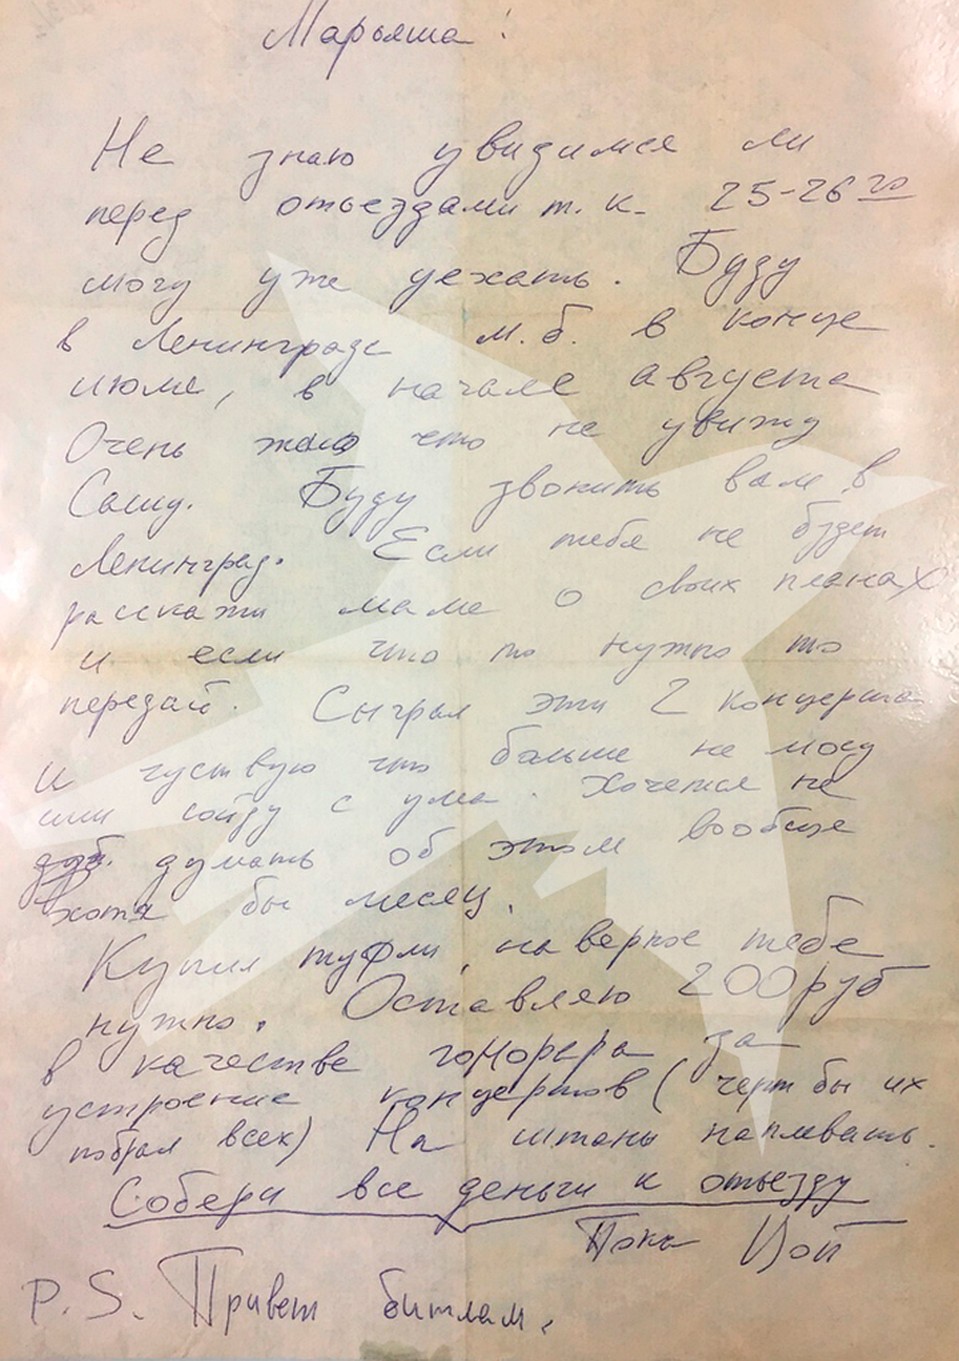 Марьяша!
Не знаю увидимся ли
перед отъездами т.к. 25-26го
могу уже уехать. Буду
в Ленинграде м.б. в конце
июля, в начале августа
Очень жаль что не увижу
Сашу. Буду звонить вам в
Ленинград. Если тебя не будет
расскажи маме о своих планах
и если что то нужно то
передай. Сыграл эти 2 концерта
и чуствую что больше не могу
или сойду с ума. Хочется не
думать об этом вообще
хотя бы месяц.
Купил туфли, наверное тебе
нужно. Оставляю 200 руб
в качестве гонорара за
устроение концертов (черт бы их
побрал всех) На штаны наплевать.
Собери все деньги к отъезду
Пока Цой
P.S. Привет битлам.